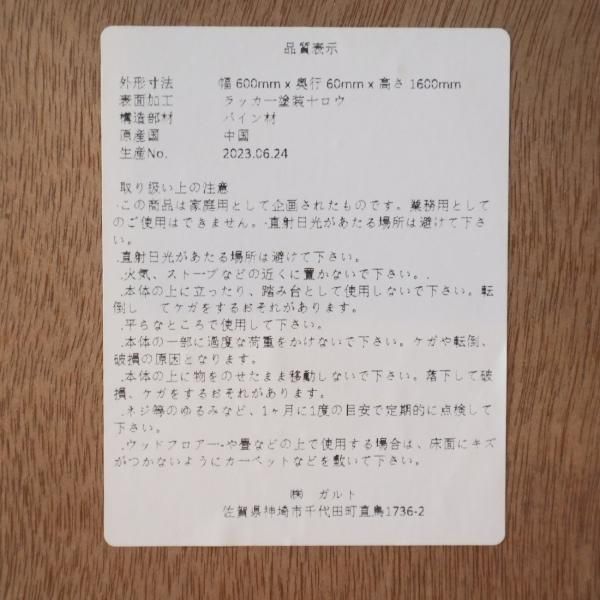 品質表示
外形寸法 幅 600mm x 奥行 60mm x 高さ 1600mm
表面加工 ラッカー塗装+ロウ
構造部材 パイン材
原産国 中国
生産No. 2023.06.24
取り扱い上の注意
·この商品は家庭用として企画されたものです。業務用として
のご使用はできません。·直射日光があたる場所は避けて下さ
い。
.直射日光があたる場所は避けて下さい。
.火気、ストーブなどの近くに置かないで下さい。.
.本体の上に立ったり、踏み台として使用しないで下さい。転
倒し てケガをするおそれがあります。
.平らなところで使用して下さい。
.本体の一部に過度な荷重をかけないで下さい。ケガや転倒、
破損の原因となります。
.本体の上に物をのせたまま移動しないで下さい。落下して破
損、ケガをするおそれがあります。
.ネジ等のゆるみなど、1ヶ月に1度の目安で定期的に点検して
下さい。
.ウッドフロアー·や畳などの上で使用する場合は、床面にキズ
がつかないようにカーペットなどを敷いて下さい。
㈱ ガルト
佐賀県神埼市千代田町直鳥1736-2